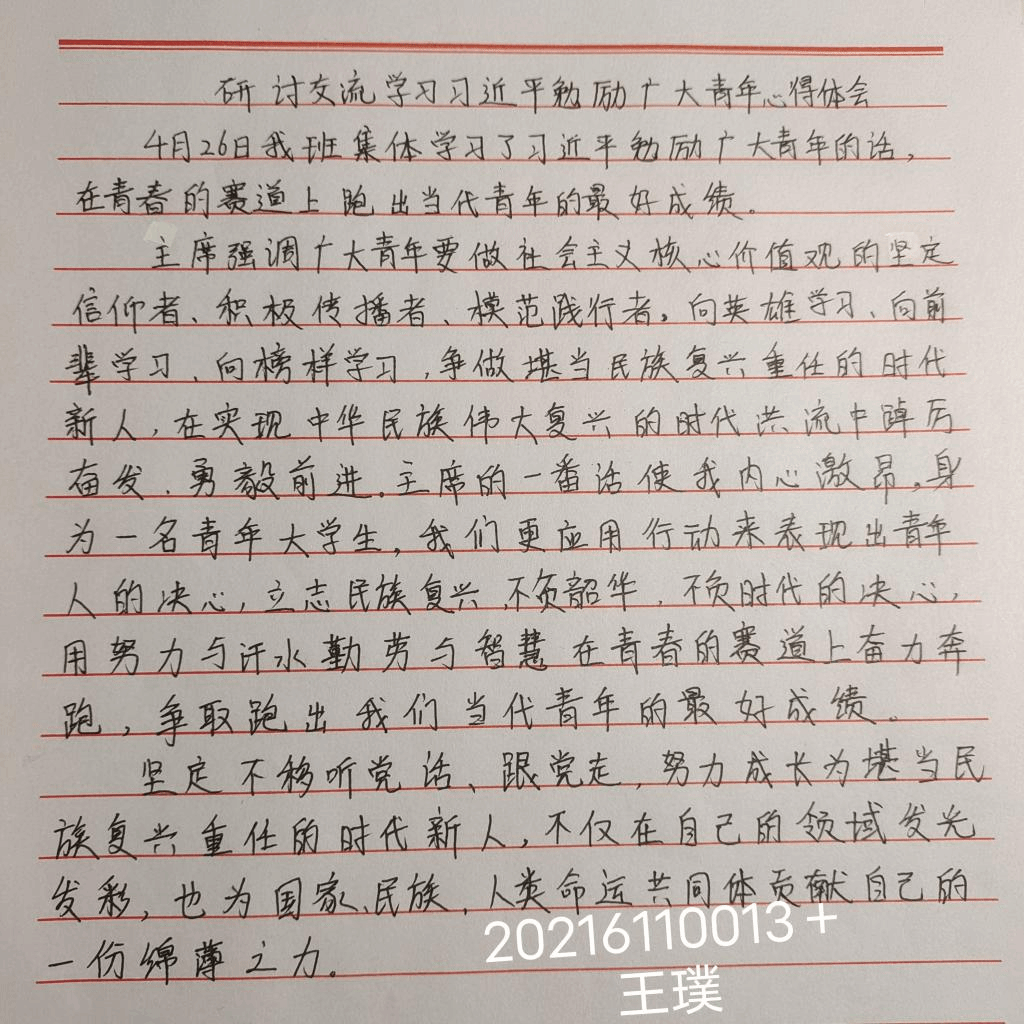 研讨交流学习习近平勉励广大青年心得体会
4月26日我班集体学习了习近平勉励广大青年的话，
在青春的赛道上跑出当代青年的最好成绩。
主席强调广大青年要做社会主义核心价值观的坚定
信仰者、积极传播者、模范践行者。向英雄学习、向前
辈学习、向榜样学习，争做堪当民族复兴重任的时代
新人，在实现中华民族伟大复兴的时代洪流中踔厉
奋发、勇毅前进。主席的一番话使我内心激昂，身
为一名青年大学生，我们更应用行动来表现出青年
人的决心，立志民族复兴，不负韶华，不负时代的决心，
用努力与汗水勤劳与智慧在青春的赛道上奋力奔
跑，争取跑出我们当代青年的最好成绩。
坚定不移听党话、跟党走，努力成长为堪当民
族复兴重任的时代新人，不仅在自己的领域发光
发彩，也为国家、民族，人类命运共同体贡献自己的
一份绵薄之力。
20216110013+
王璞